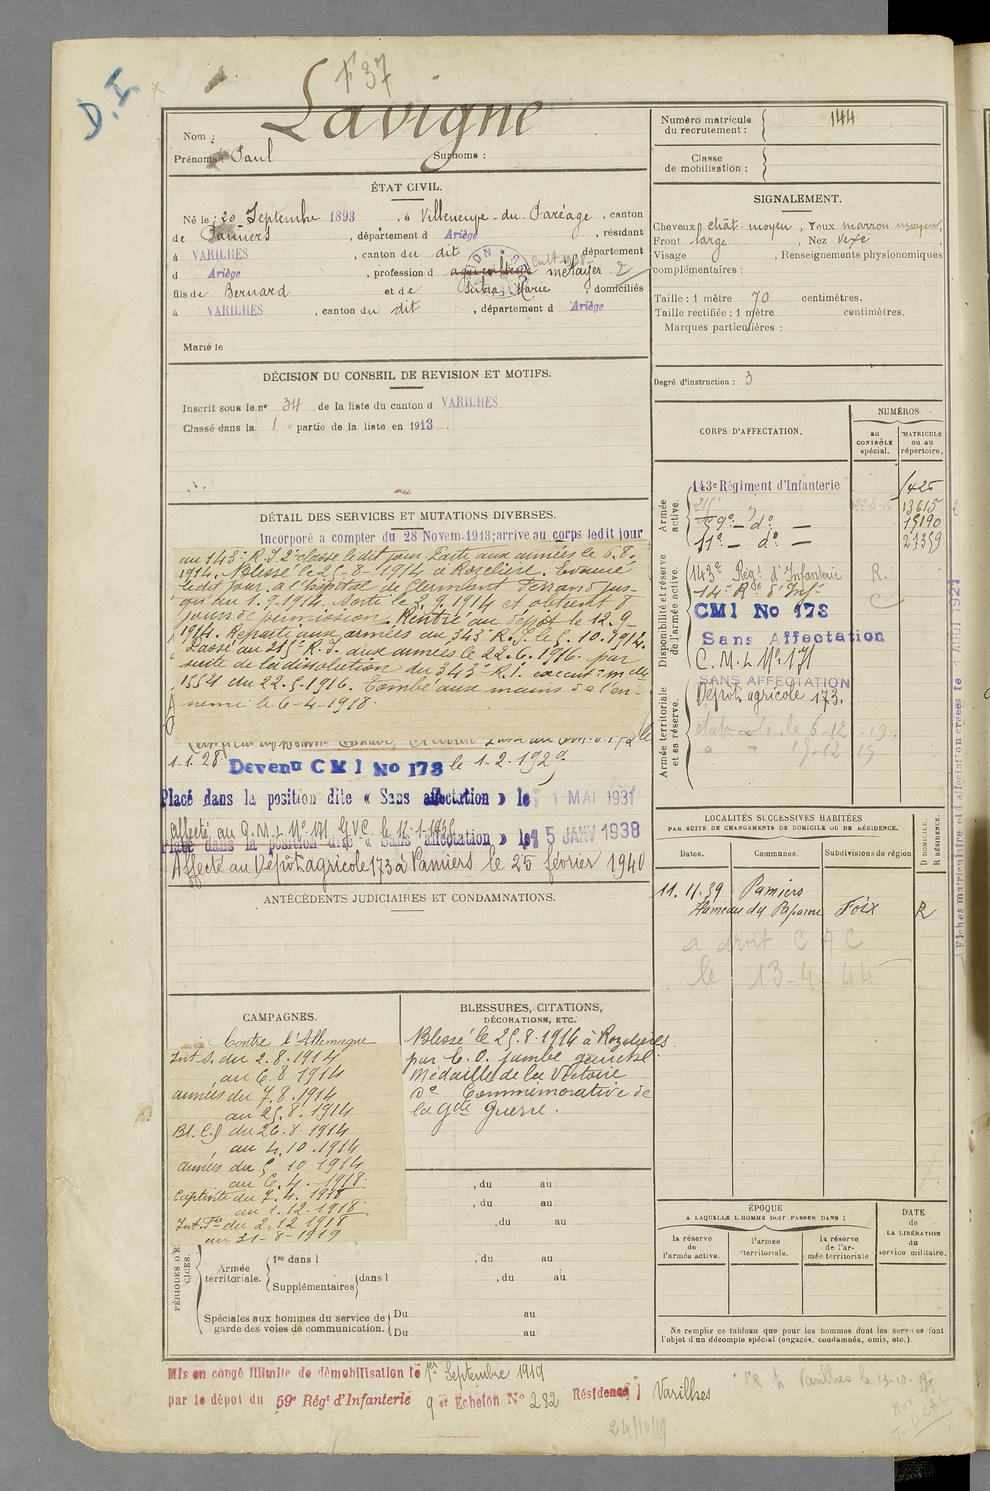 D.I
F 37
Nom : Lavigne
Prénoms : Paul Surnoms :
ÉTAT CIVIL.
Né le : 20 Septembre 1893, à Villeneuve-du-Paréage, canton
de Pamiers, département d Ariège, résidant
à VARILHES, canton du dit département
d Ariège, profession d agriculteur métayer
cult 1938
fils de Bernard et de Marie, domiciliés
à VARILHES, canton du dit, département d Ariège
Marié le
DÉCISION DU CONSEIL DE REVISION ET MOTIFS.
Inscrit sous le n° 34 de la liste du canton d VARILHES
Classé dans la 1 e partie de la liste en 1913.
DÉTAIL DES SERVICES ET MUTATIONS DIVERSES.
Incorporé a compter du 28 Novem. 1913; arrivé au corps ledit jour
au 143e R.I. 2e classe le dit jour. Parti aux armées le 6.8.
1914. Blessé le 25-8-1914 à Rozelière. Evacué
ledit jour à l'hôpital de Clermont Ferrand jus-
qu'au 1.9.1914. Sorti le 2.9.1914 et obtient 8
jours de permission. Rentré au dépôt le 12.9-
1914. Réparti aux armées au 343e R.I. le 5.10.1914.
Passé au 215e R.I. aux armées le 22.6.1916. par
suite de la dissolution du 343e R.I.
15521 du 22.5.1916. Tombé aux mains de l'en-
nemi le 6-4-1918.
1.1.28. Devenu CMI No 173 le 1.2.1929
Placé dans la position dite « Sans affectation » le 1 MAI 1931
affecté au C.M.I. N° 171 G.V.C. le
Placé dans la position dite « Sans affectation » le 15 JANV 1938
Affecté au Dépôt agricole 173 à Pamiers le 25 février 1940
ANTÉCÉDENTS JUDICIAIRES ET CONDAMNATIONS.
CAMPAGNES.
Contre l'Allemagne
Int. S. du 2.8.1914
au 6.8.1914
armées du 7.8.1914
au 25.8.1914
Bl. C.D du 26.8.1914
au 4.10.1914
armées du 5 10 1914
au 6.4.1918.
Captivité du 7.4.1918
au 1.12.1918.
Int. Fce du 2.12 1918
au 31-8-1919
BLESSURES, CITATIONS,
DÉCORATIONS, ETC.
Blessé le 25.8.1914 à Rozelières
par E.O. jambe gauche.
Médaille de la Victoire
d° Commémorative de
la Gde Guerre.
, du au
, du au
, du au
PÉRIODES D'E
CICES.
Armée territoriale.
1re dans l , du au
Supplémentaires dans l , du au
Spéciales aux hommes du service de garde des voies de communication.
Du au
Du au
Mis en congé illimité de démobilisation le 1er Septembre 1919
par le dépôt du 59e Régt d'Infanterie 9e Echelon N° 282 Résidence : Varilhes
24/10/19
Numéro matricule du recrutement : 144
Classe de mobilisation :
SIGNALEMENT.
Cheveux chât. moyen, Yeux marron moyen,
Front large, Nez vexe
Visage , Renseignements physionomiques
complémentaires :
Taille : 1 mètre 70 centimètres.
Taille rectifiée : 1 mètre centimètres.
Marques particulières :
Degré d'instruction : 3
CORPS D'AFFECTATION.
NUMÉROS
au CONTRÔLE spécial.
MATRICULE ou au répertoire.
Armée active.
143e Régiment d'Infanterie 1425
215e 22-6-16 13615
59e - d° - 15190
11e - d° - 21359
Disponibilité et réserve de l'armée active.
143e Régt d'Infanterie R.
14e Rt d'Infie C
CMI No 173
Sans Affectation
C.M.I. N° 171
SANS AFFECTATION
Armée territoriale et sa réserve.
Dépôt agricole 173.
LOCALITÉS SUCCESSIVES HABITÉES
PAR SUITE DE CHANGEMENTS DE DOMICILE OU DE RÉSIDENCE.
Dates. Communes. Subdivisions de région
D DOMICILE. R RÉSIDENCE.
11.11.39 Pamiers
Hameau du Foix R
a droit C A C
le 13-4-44
ÉPOQUE
A LAQUELLE L'HOMME DOIT PASSER DANS :
la réserve de l'armée active.
l'armée territoriale.
la réserve de l'armée territoriale.
DATE de LA LIBÉRATION du service militaire.
Ne remplir ce tableau que pour les hommes dont les services font
l'objet d'un décompte spécial (engagés, condamnés, omis, etc.).
Varilhes le 13-10-